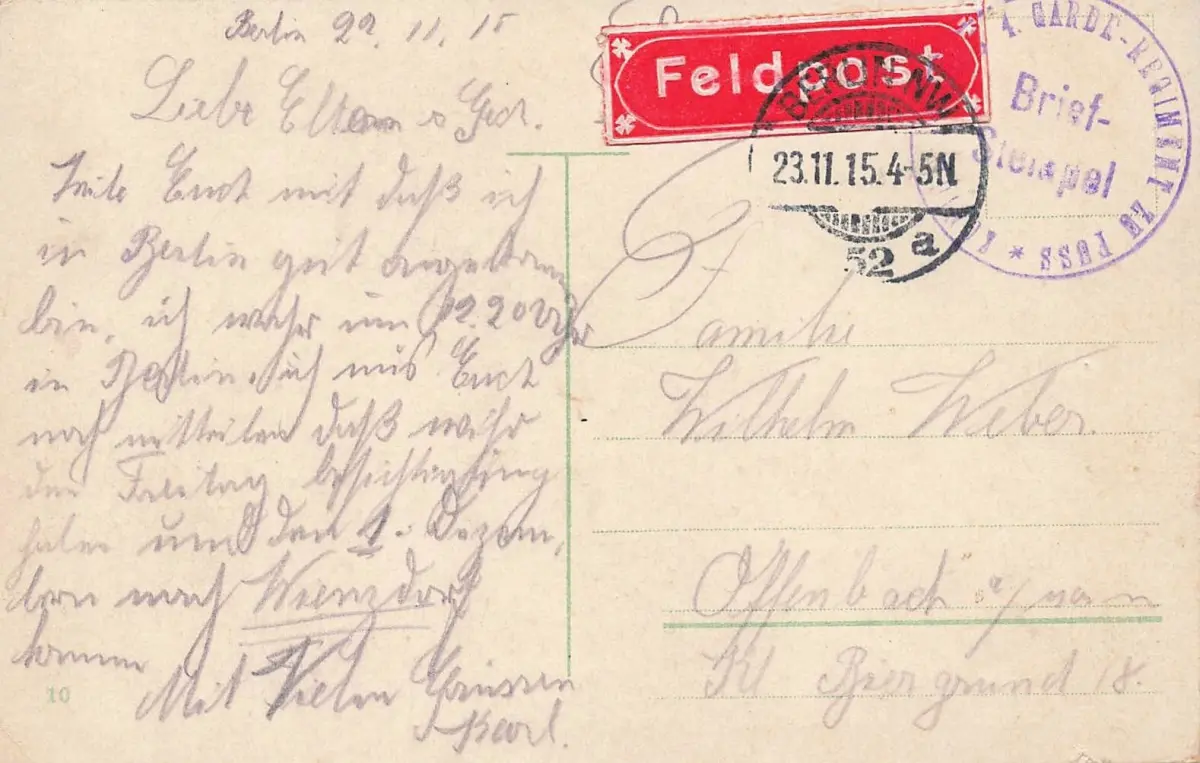 Berlin 22. 11. 15
Liebe Eltern u Ges.
Teile Euch mit daß ich
in Berlin gut angekomm
bin, ich wahr um 12.20 Uhr
in Berlin. ich mus Euch
noch mitteilen daß wihr
den Freitag besichtigung
haben und den 1. Dezem,
bern nach
kommen
Mit Vielen Grüssen
Karl.
10
Feldpost
BERLIN NW
23.11.15.4-5N.
52 a
4. GARDE-REGIMENT ZU FUSS
Brief-
Stempel
Familie
Wilhelm Weber.
Offenbach a/main
Kl Biergrund 18.